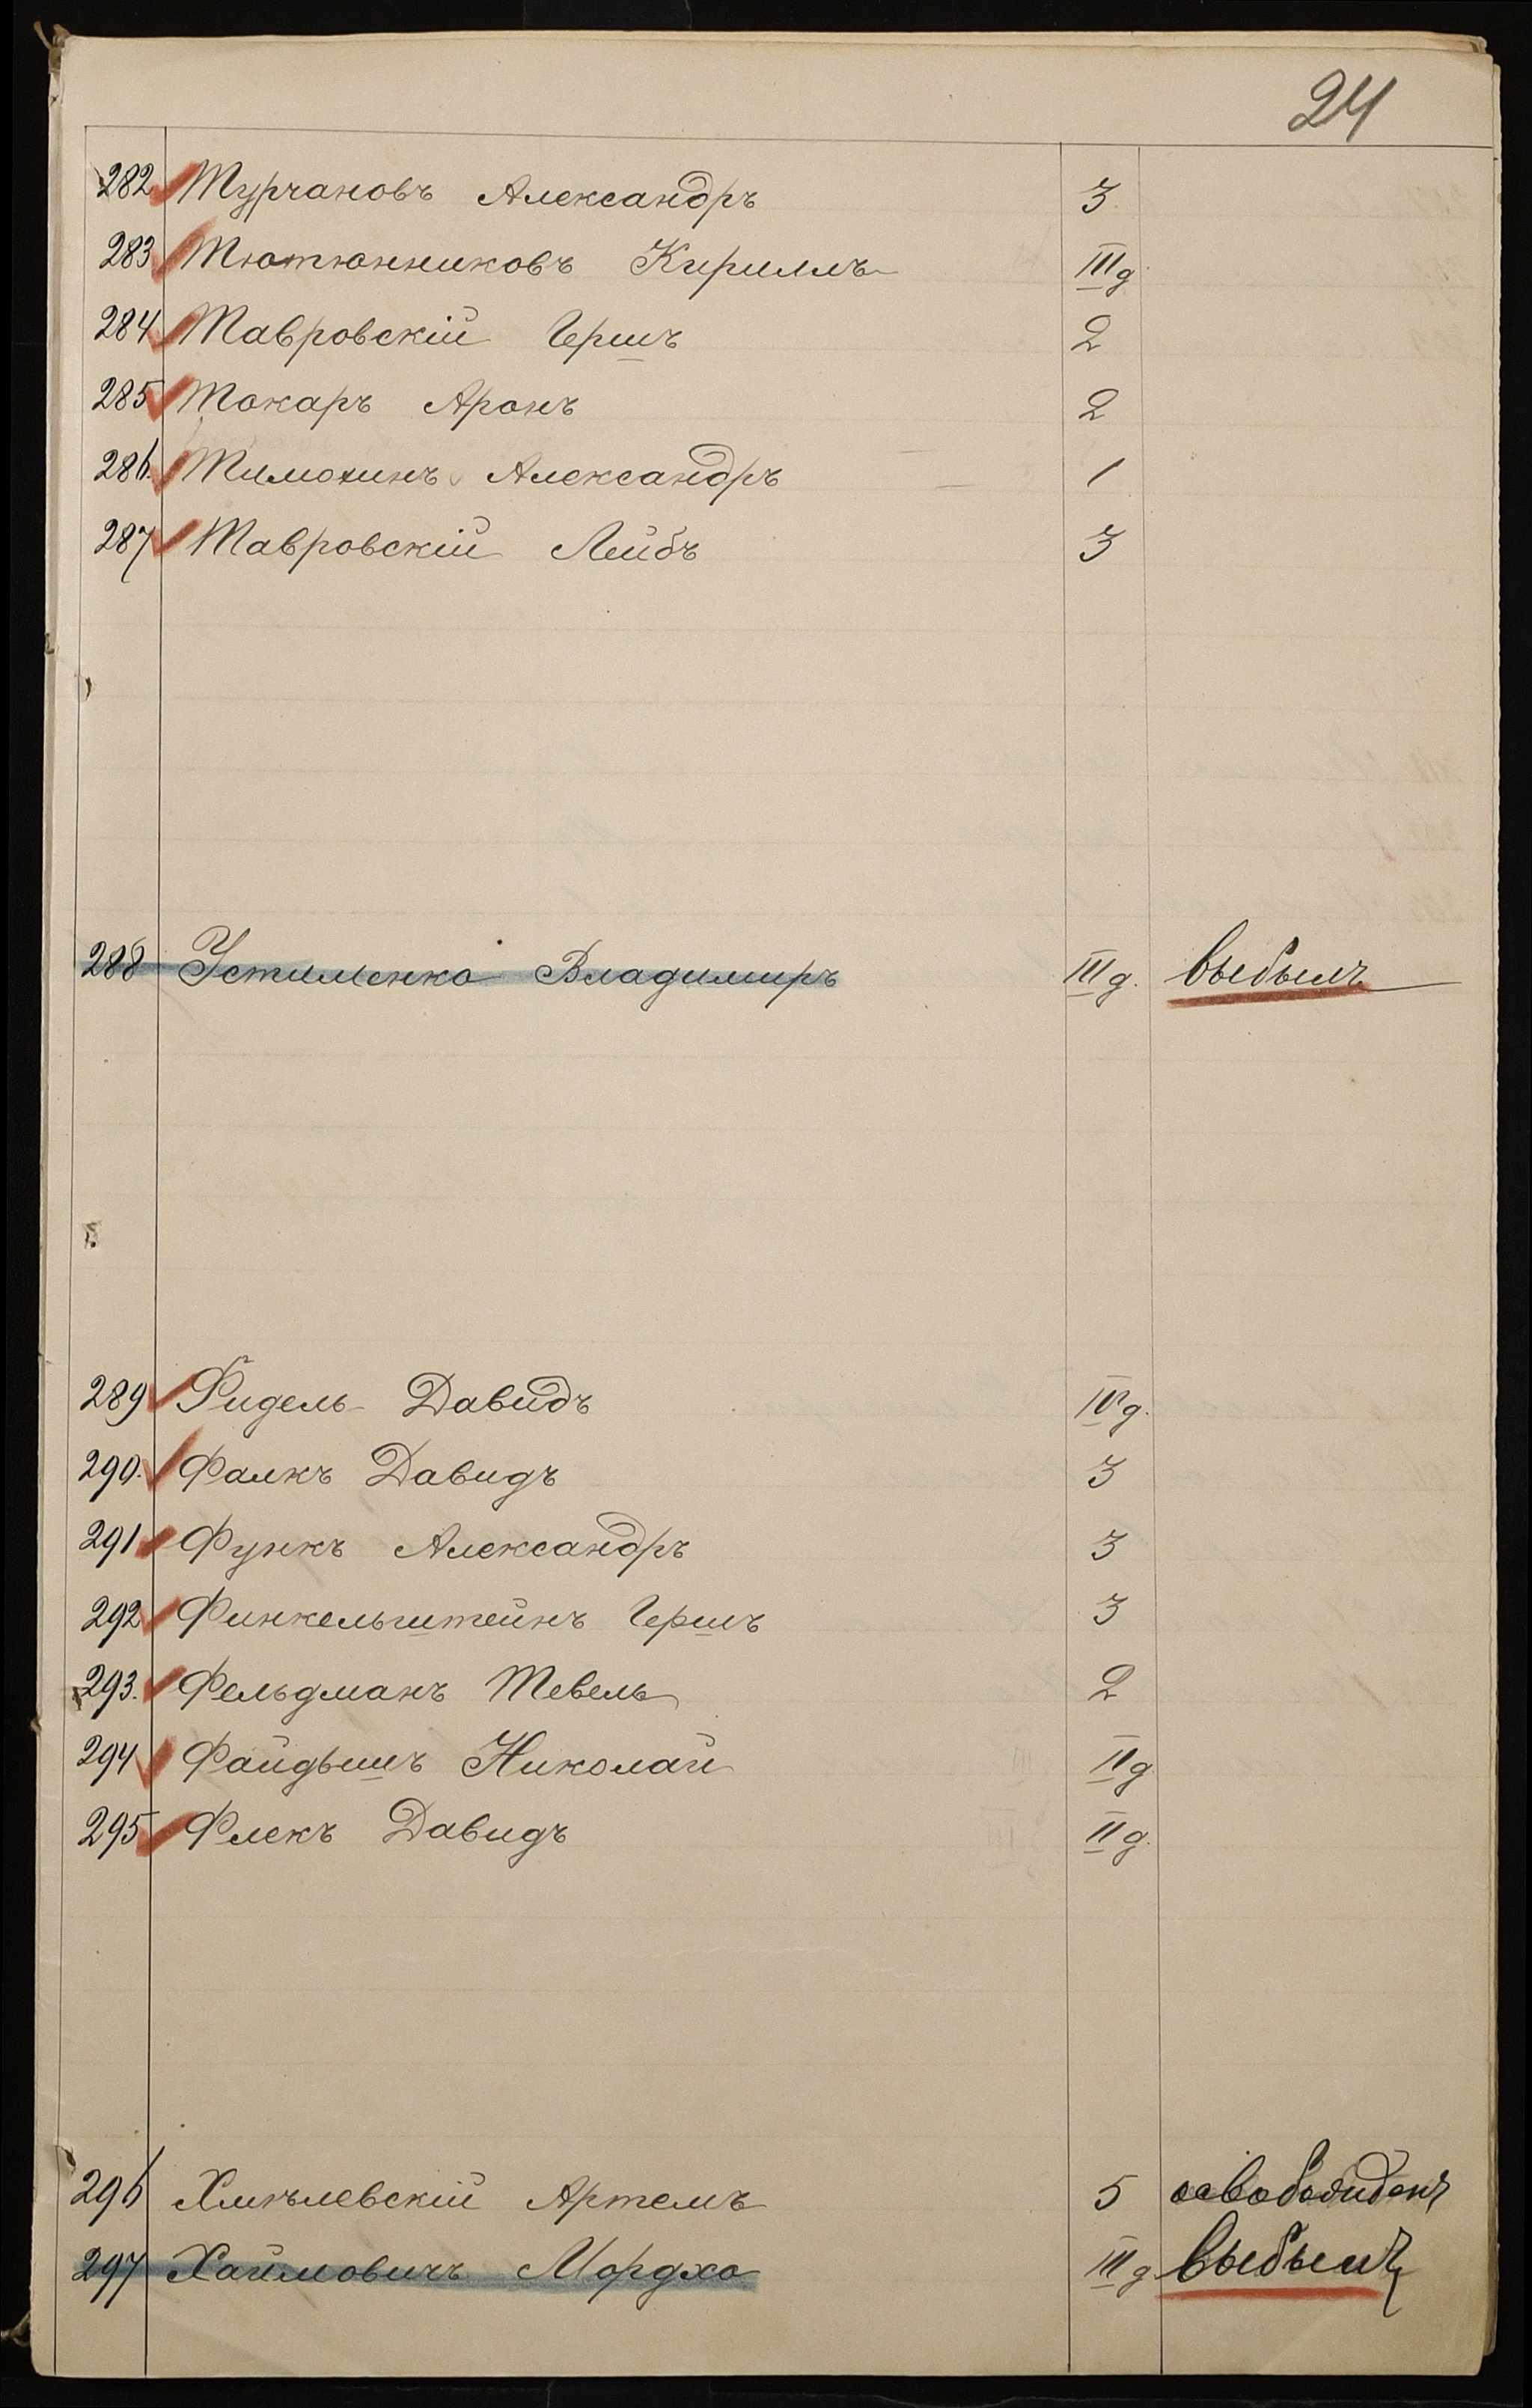 24
282 Турчановъ Александръ 3
283 Тютюнниковъ Кириллъ III д
284 Тавровскій Гершъ 2
285 Токаръ Аронъ 2
286. Тимохинъ Александръ 1
287 Тавровскій Лейбъ 3
288 Устименко Владимиръ III д. выбылъ
289 Фидель Давидъ IV д.
290. Фалкъ Давидъ 3
291 Функъ Александръ 3
292 Финкельштейнъ Гершъ 3
293. Фельдманъ Тевель 2
294 Файдышъ Николай II д
295 Флекъ Давидъ II д.
296 Хмѣлевскій Артемъ 5 освобожденъ
297 Хаймовичъ Мордхо III д выбылъ